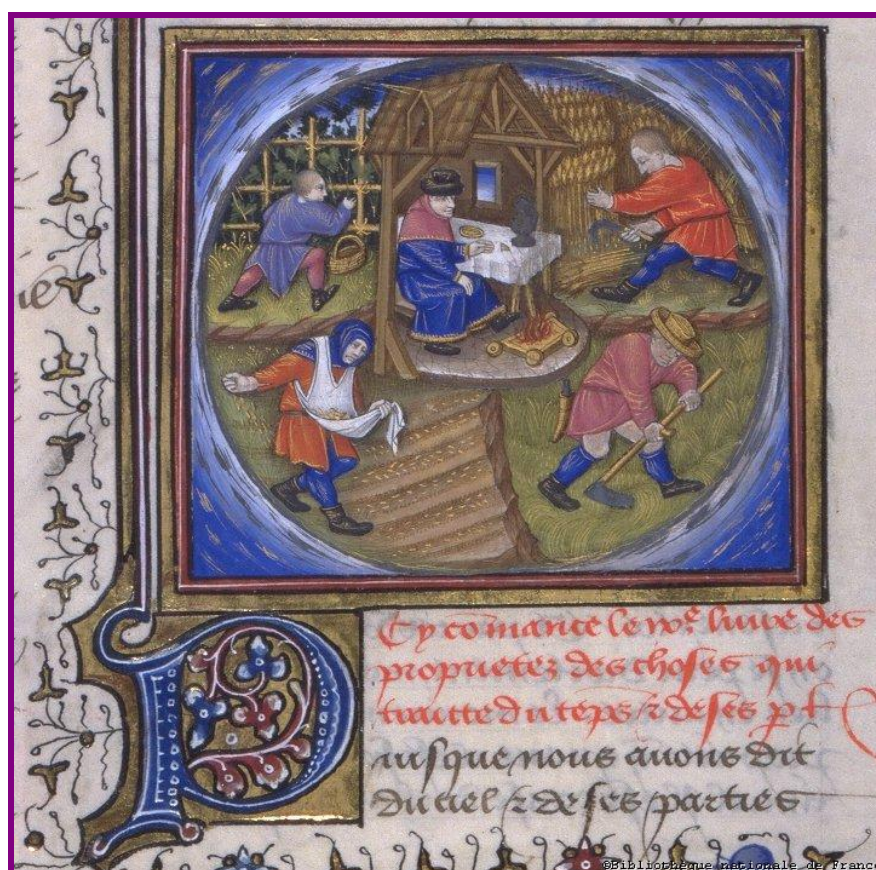 Cy cōmance le ixe livre des
proprietez des choses qui
traitte du tēps & de ses pt
Puisque nous avons dit
du ciel & de ses parties
©Bibliothèque nationale de France